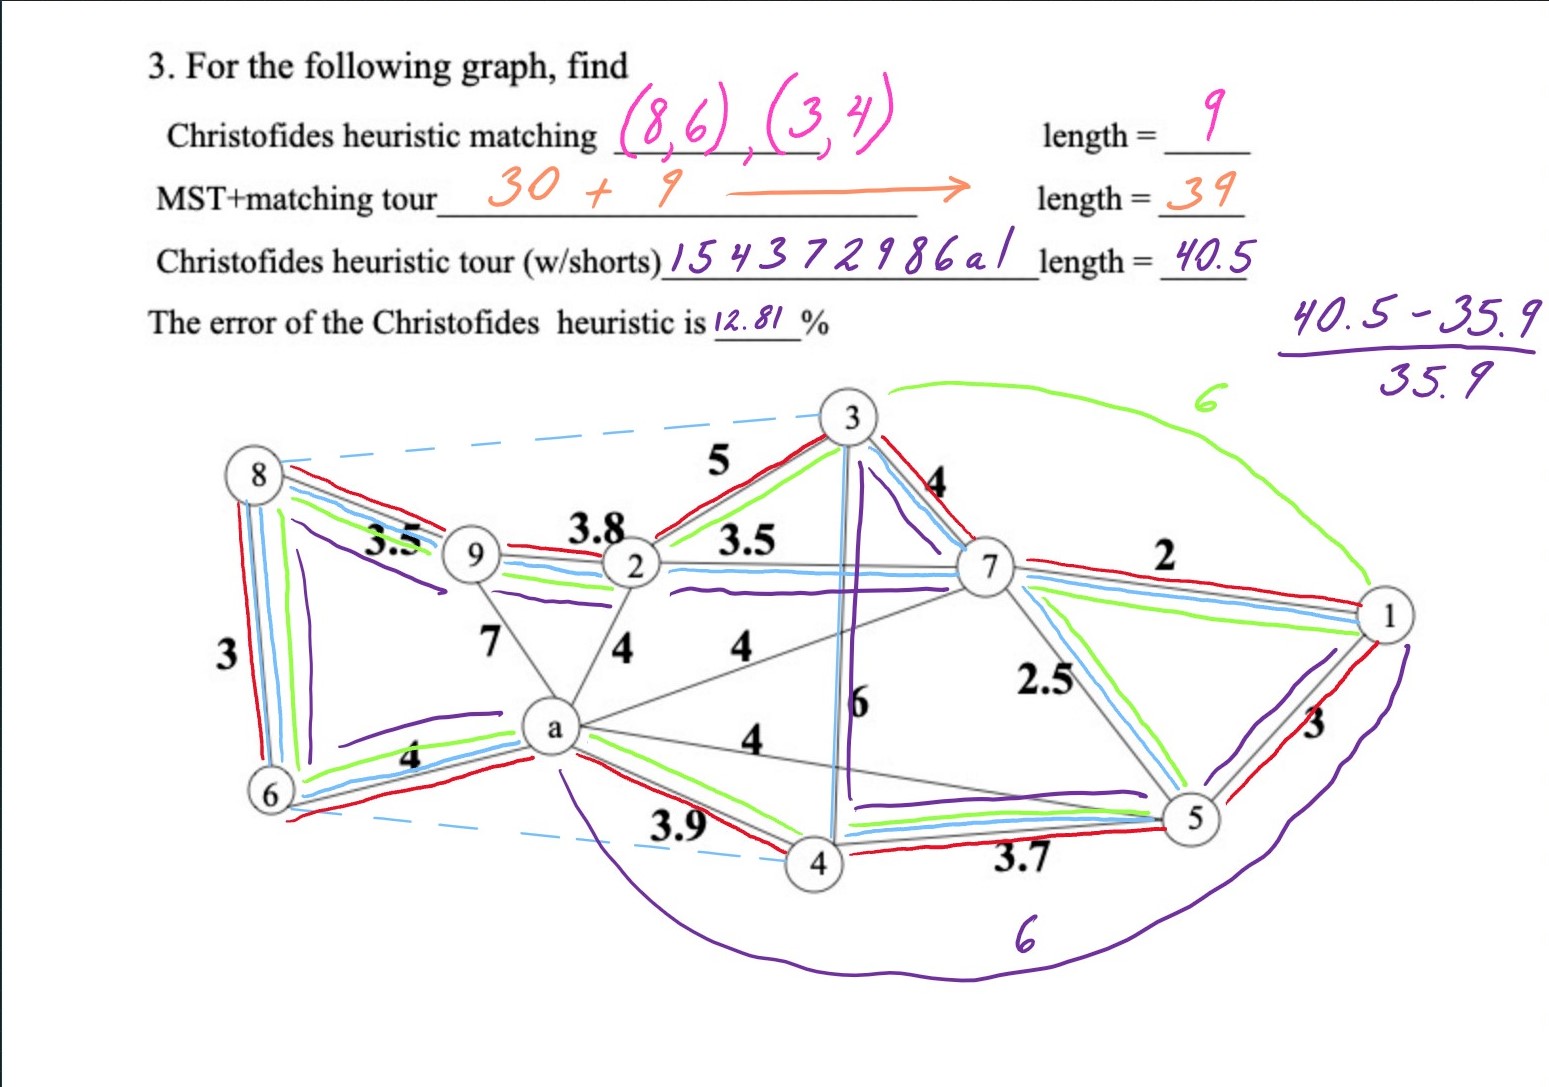 3. For the following graph, find
Christofides heuristic matching (8,6), (3,4) length = 9
MST+matching tour 30 + 9 → length = 39
Christofides heuristic tour (w/shorts) 1 5 4 3 7 2 9 8 6 a 1 length = 40.5
The error of the Christofides heuristic is 12.81 %
40.5 - 35.9
35.9
6
3
8
5
4
3.5
9
3.8
2
3.5
7
2
1
3
7
4
4
2.5
6
3
a
4
4
6
3.9
4
3.7
5
6